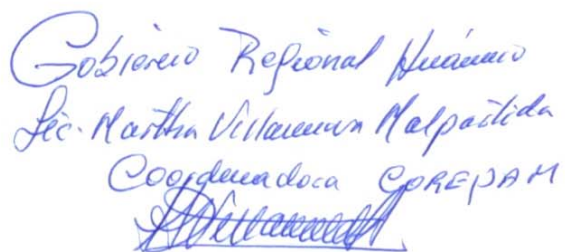 Gobierno Regional Huánuco
Lic. Martha Villanueva Malpartida
Coordinadora COREPAM